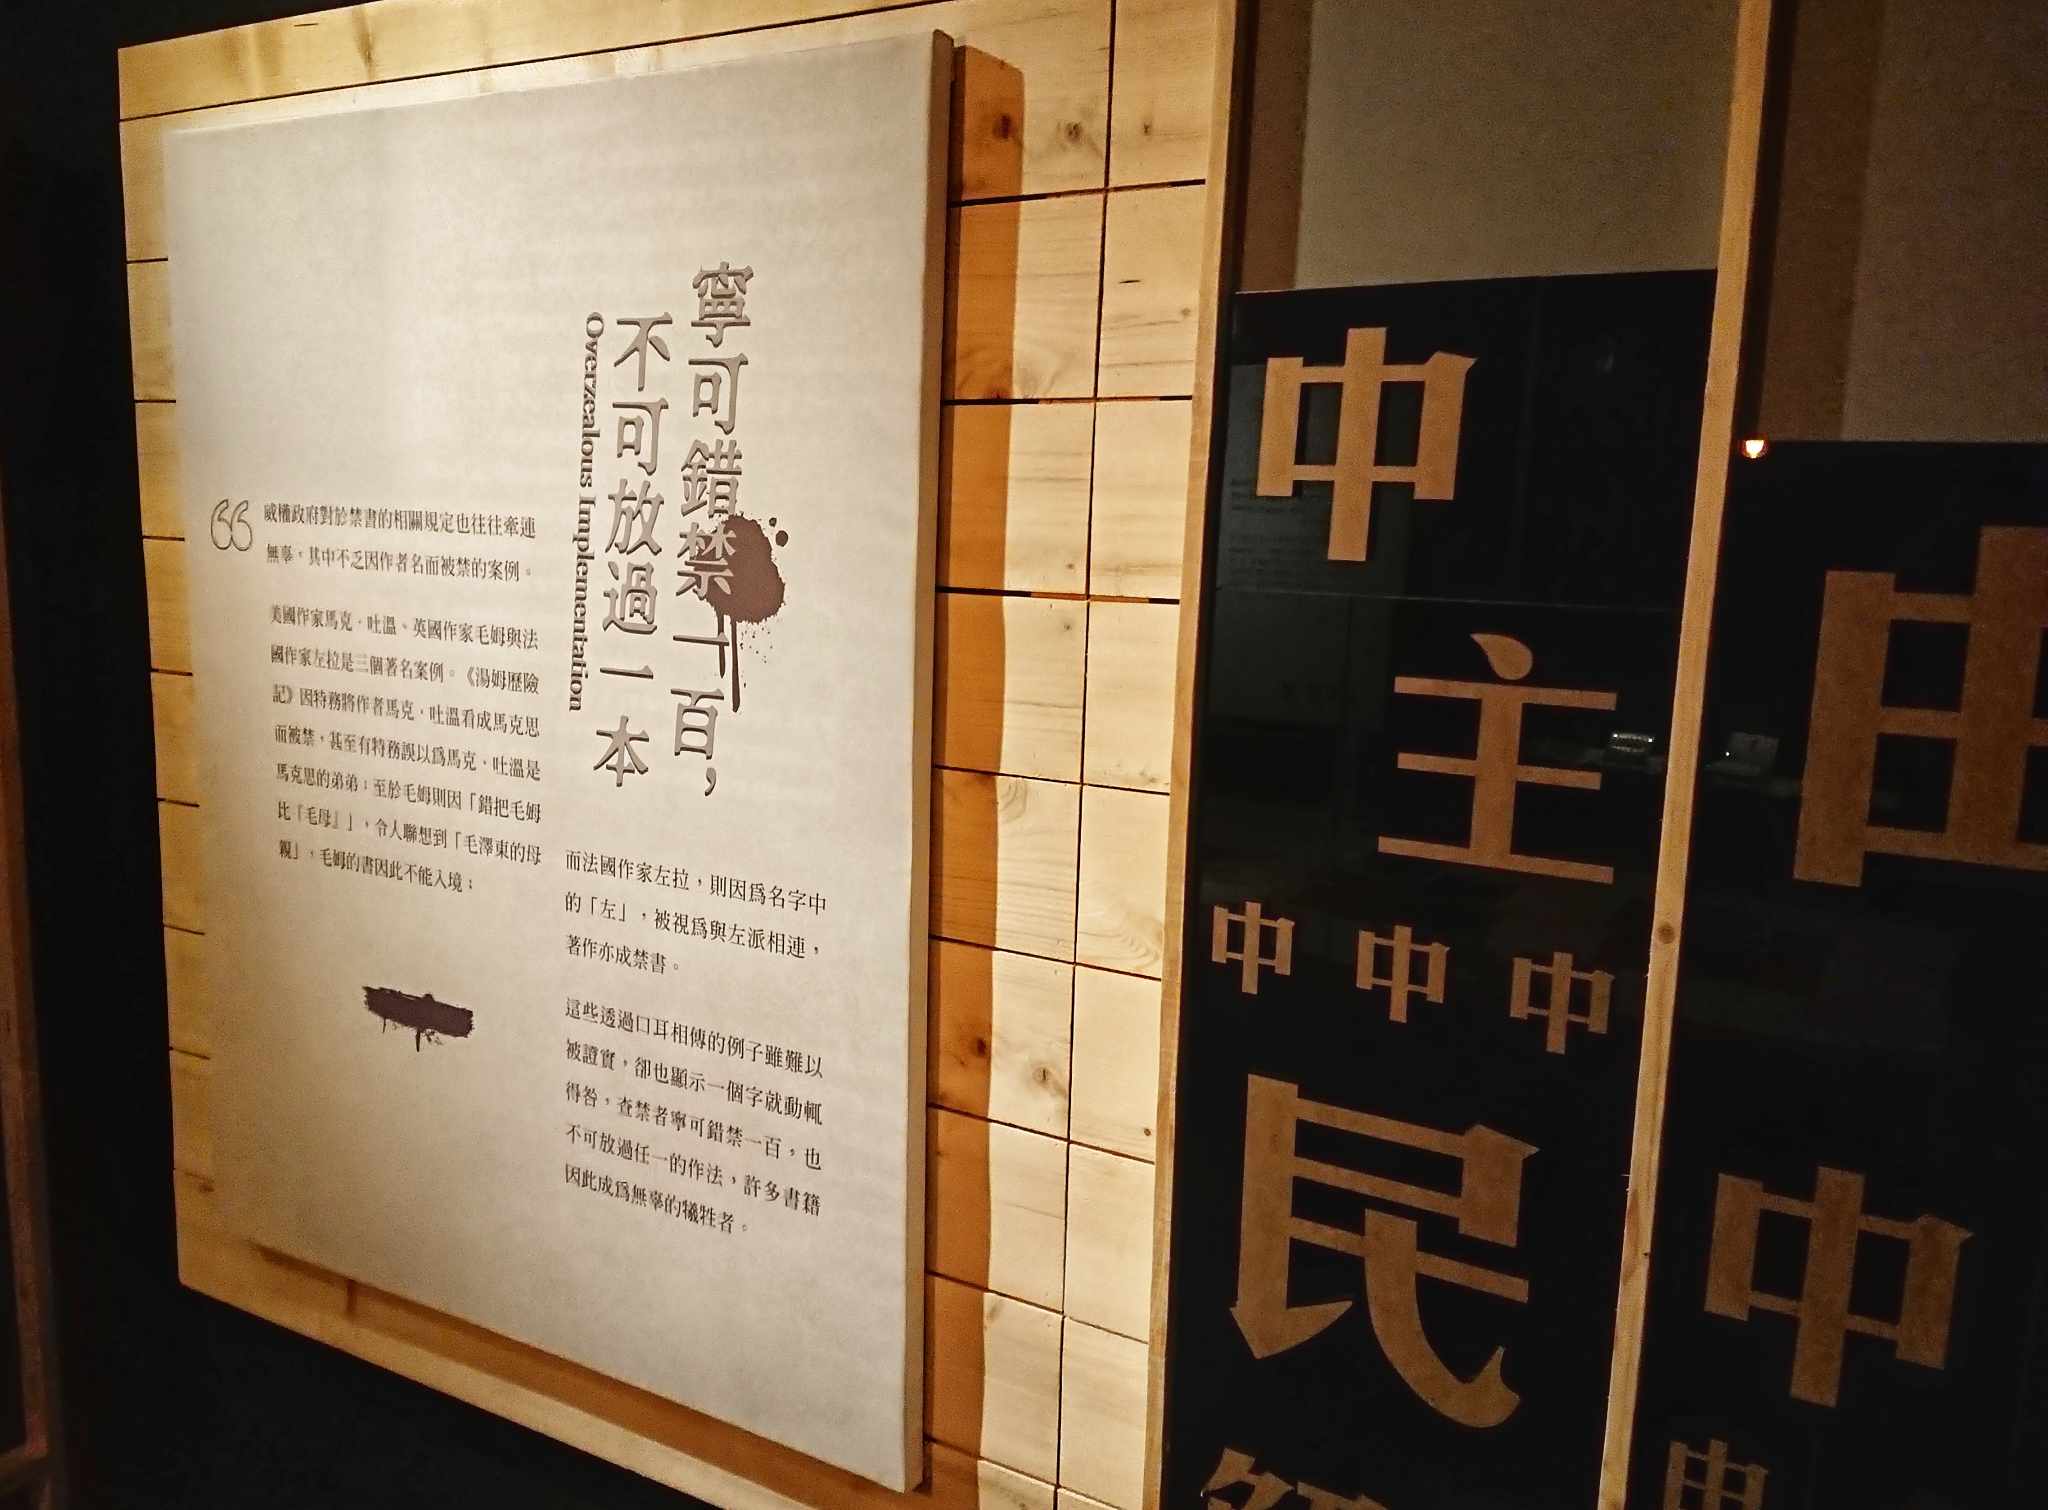 寧可錯禁一百，
不可放過一本
Overzealous Implementation
威權政府對於禁書的相關規定也往往牽連
無辜，其中不乏因作者名而被禁的案例。
美國作家馬克．吐溫、英國作家毛姆與法
國作家左拉是三個著名案例。《湯姆歷險
記》因特務將作者馬克．吐溫看成馬克思
而被禁，甚至有特務誤以為馬克．吐溫是
馬克思的弟弟；至於毛姆則因「錯把毛姆
比『毛母』」，令人聯想到「毛澤東的母
親」，毛姆的書因此不能入境；
而法國作家左拉，則因為名字中
的「左」，被視為與左派相連，
著作亦成禁書。
這些透過口耳相傳的例子雖難以
被證實，卻也顯示一個字就動輒
得咎，查禁者寧可錯禁一百，也
不可放過任一的作法，許多書籍
因此成為無辜的犧牲者。
中
主
中 中 中
民
中
中